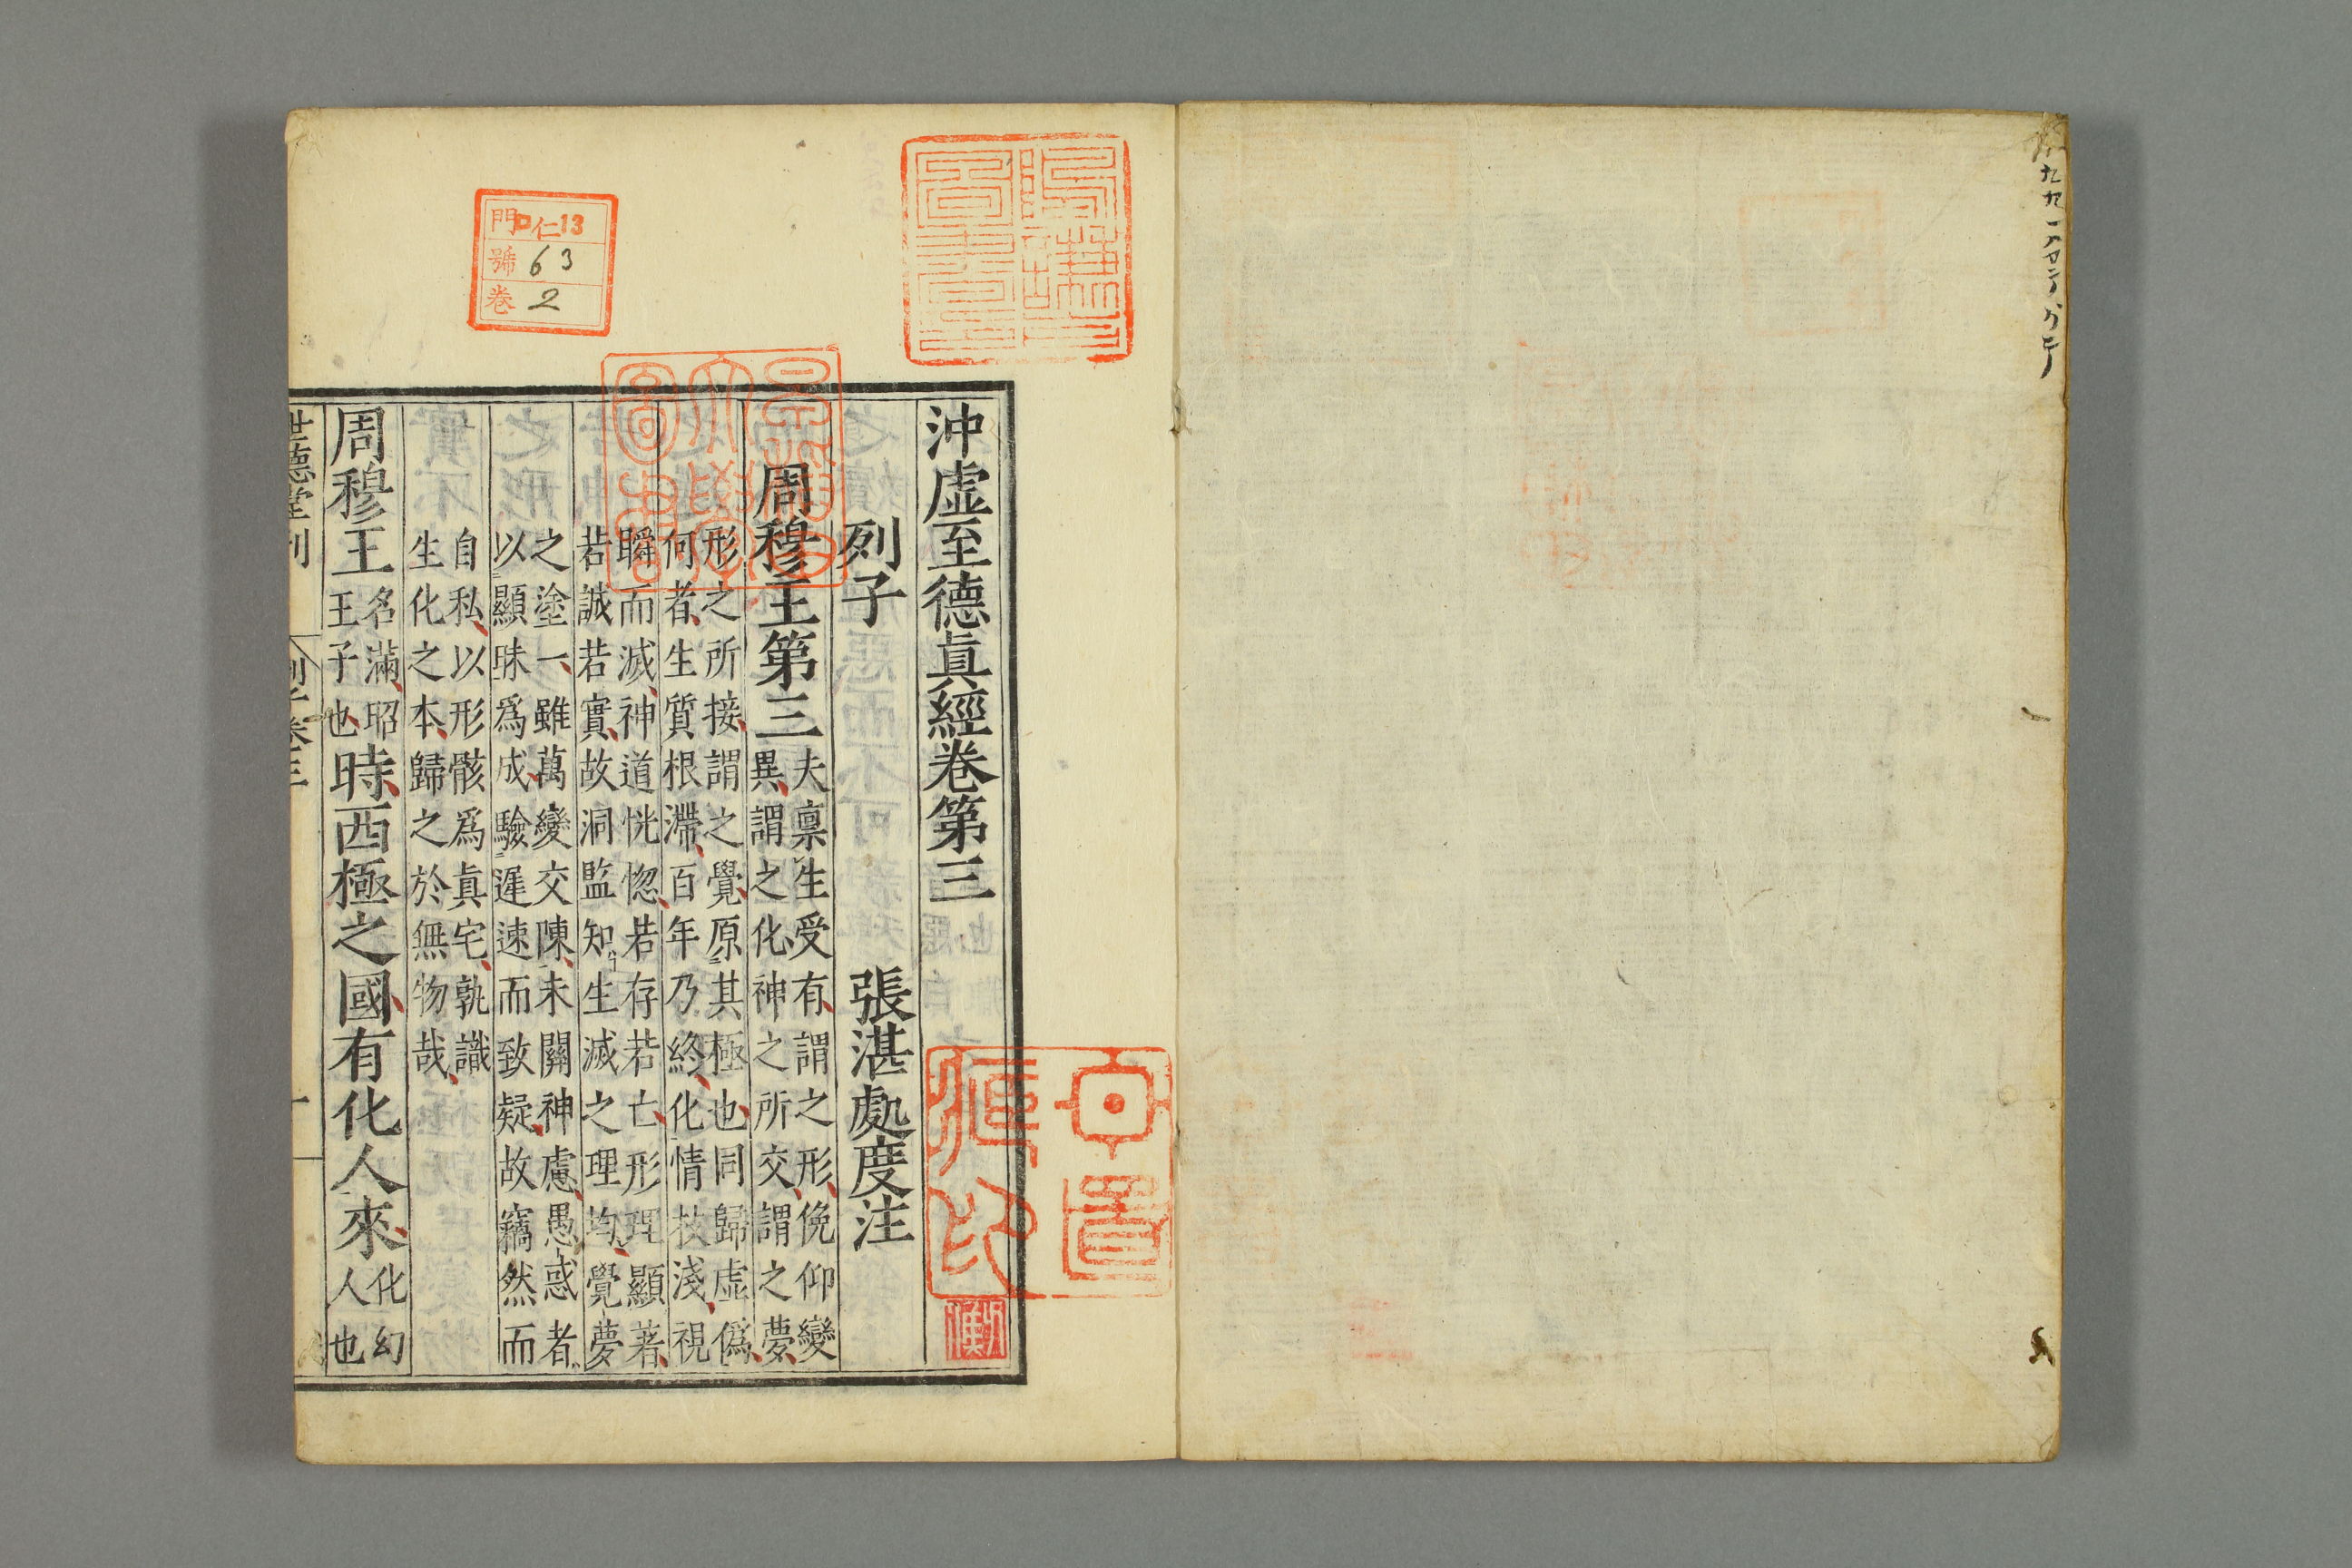 沖虛至德眞經卷第三
列子 張湛處度注
周穆王第三
夫稟生受有謂之形俛仰變
異謂之化神之所交謂之夢
形之所接謂之覺原其極也同歸虛僞
何者生質根滯百年乃終化情枝淺視
瞬而滅神道恍惚若存若亡形理顯著
若誠若實故洞監知生滅之理均覺夢
之塗一雖萬變交陳未關神慮愚惑者
以顯昧爲成驗遲速而致疑故竊然而
自私以形骸爲眞宅孰識
生化之本歸之於無物哉
周穆王
名滿昭
王子也
時西極之國有化人來
化幻
人也
世德堂刊
列子卷三
一
門 口仁13
號 63
卷 2